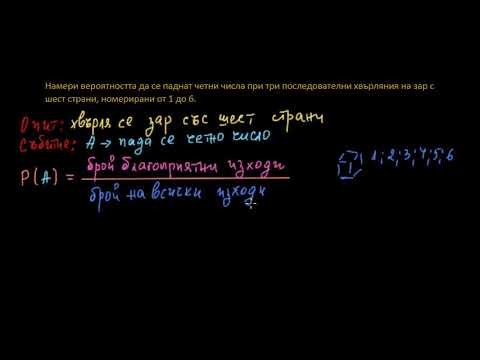 Намери вероятността да се паднат четни числа при три последователни хвърляния на зар с
шест страни, номерирани от 1 до 6.
Опит: хвърля се зар със шест страни
Събитие: A → пада се четно число
P(A) = брой благоприятни изходи
брой на всички изходи
1;2;3;4;5;6